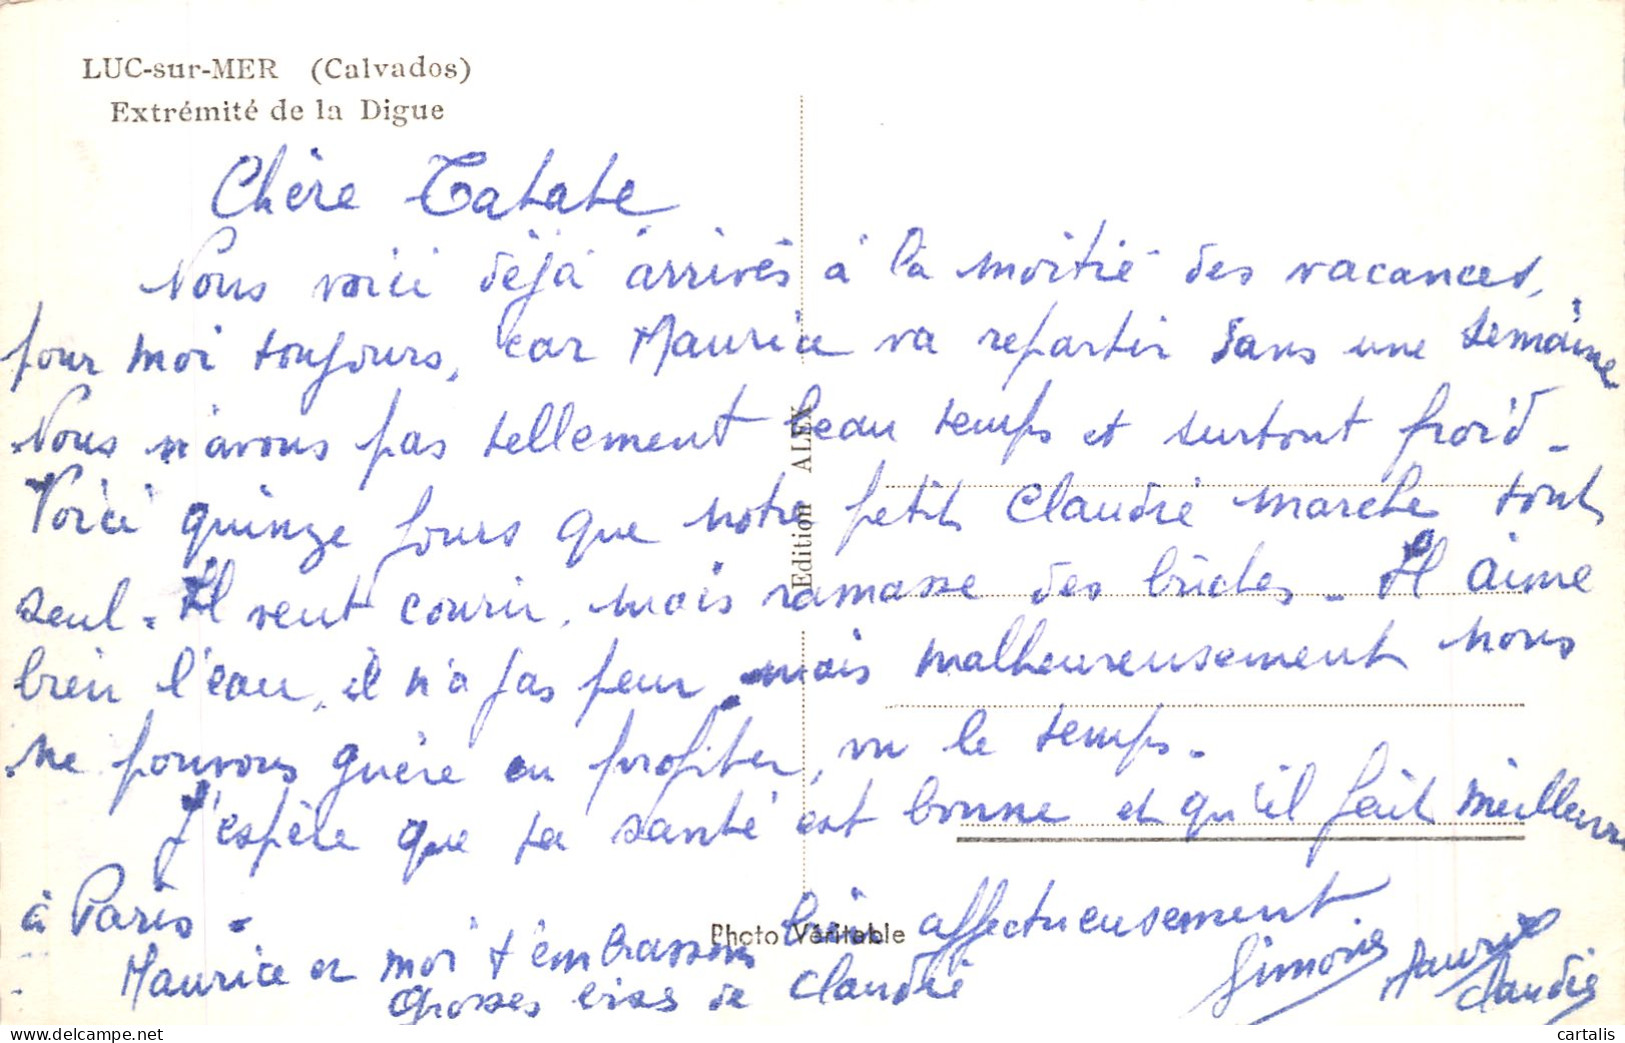 LUC-sur-MER (Calvados)
Extrémité de la Digue
Chère Tatate
Nous voici déjà arrivés à la moitié des vacances,
pour moi toujours, car Maurice va repartir dans une semaine
Nous n'avons pas tellement beau temps et surtout froid -
Voici quinze jours que notre petit Claudie marche tout
seul. Il veut courir, mais ramasse des bûches - Il aime
bien l'eau, il n'a pas peur, mais malheureusement nous
ne pouvons guère en profiter, vu le temps.
J'espère que ta santé est bonne et qu'il fait meilleur
à Paris -
Maurice et moi t'embrassons bien affectueusement.
Grosses bises de Claudie
Simone Maurice
Claudie
Edition ALEX
Photo Véritable
cartalis